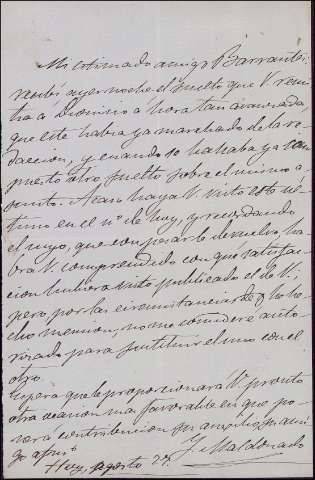 Mi estimado amigo Barrantes:
recibí ayer noche el suelto que V. remi-
tía á Dionisio á hora tan avanzada,
que este había ya marchado de la re-
daccion, y cuando yo había ya
puesto otro suelto sobre el mismo a-
sunto. Acaso haya V. visto este úl-
timo en el nº de hoy, y recordando
el suyo, que con pesar le devuelvo, ha-
brá V. comprendido con qué satisfac-
cion hubiera visto publicado el de V.
pero por las circunstancias de q. he he-
cho mencion, no me consideré auto-
rizado para sustituir el uno con el
otro.
Espera que le proporcionará V. pronto
otra ocasion mas favorable en que po-
su ami-
go afmo.
J. Maldonado
Hoy, agosto 27.